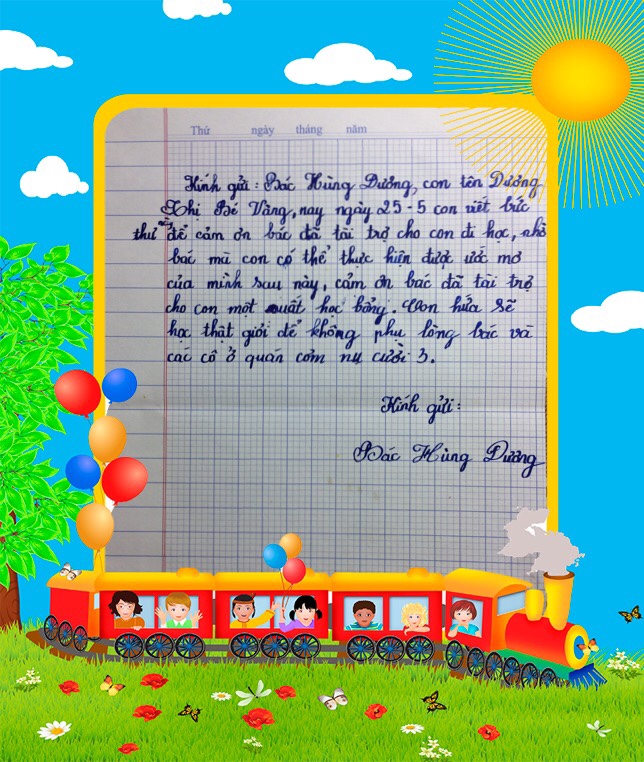 Thứ ngày tháng năm
Kính gửi : Bác Hùng Dưỡng, con tên Dương
Thị Bé Vàng, nay ngày 25-5 con viết bức
thư để cảm ơn bác đã tài trợ cho con đi học, nhờ
bác mà con có thể thực hiện được ước mơ
của mình sau này, cảm ơn bác đã tài trợ
cho con một suất học bổng. Con hứa sẽ
học thật giỏi để không phụ lòng bác và
các cô ở quán cơm nụ cười 3.
Kính gửi :
Bác Hùng Dưỡng